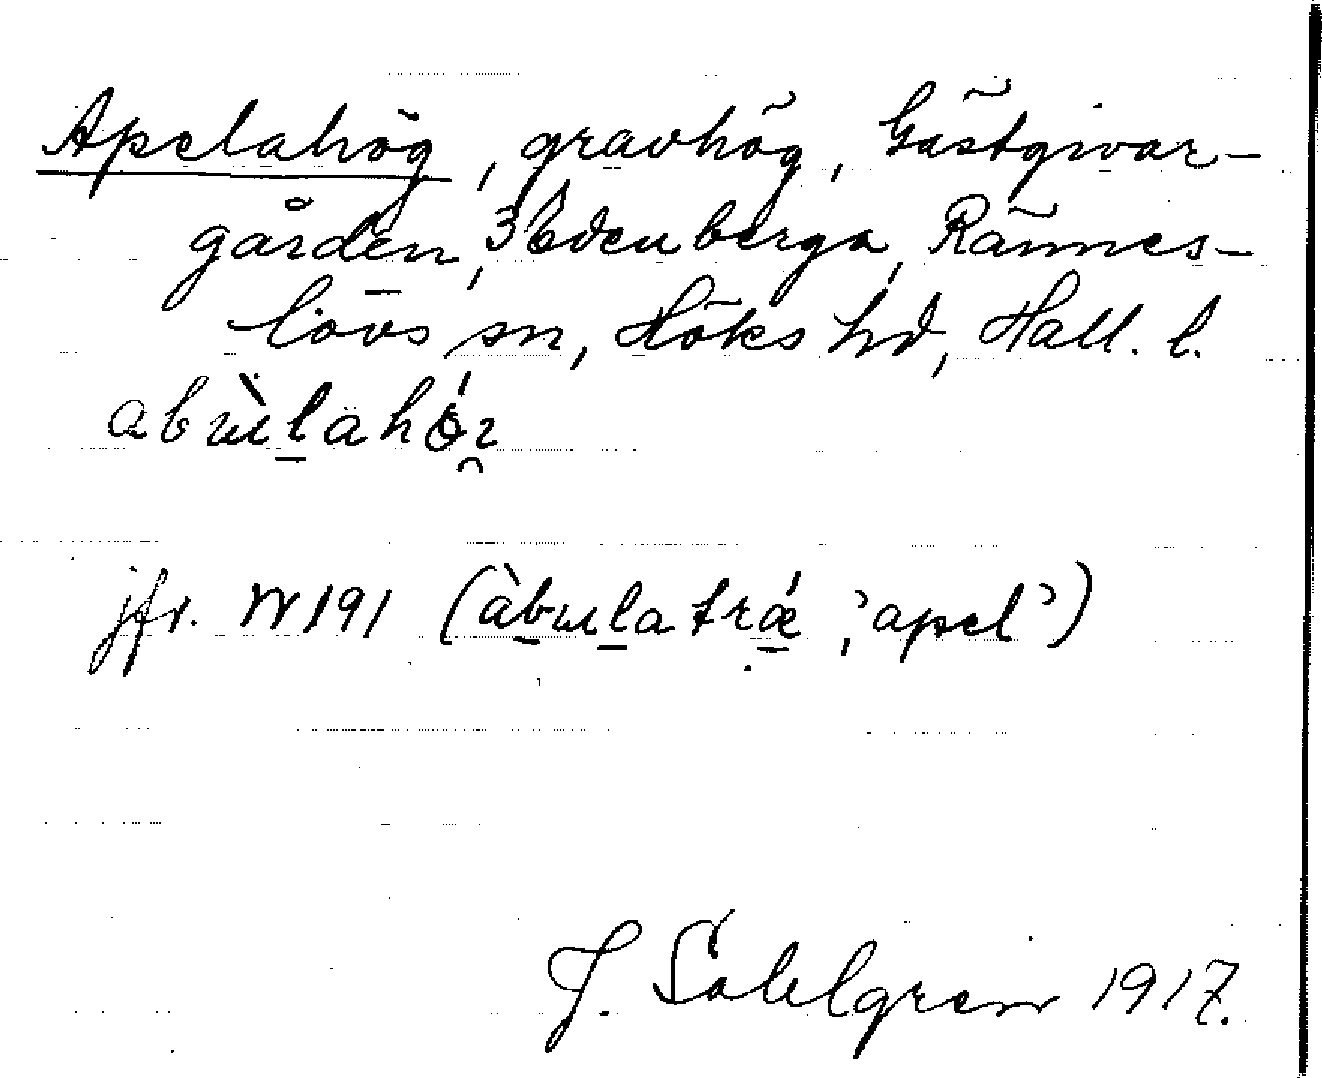 Apelahög, gravhög, Gästgivar-
gården, 3 Edenberga, Rännes-
lövs sn, Höks hd, Hall. l.
jfr. W 191 (àbulatrǽ, 'apel')
J. Sahlgren 1917.